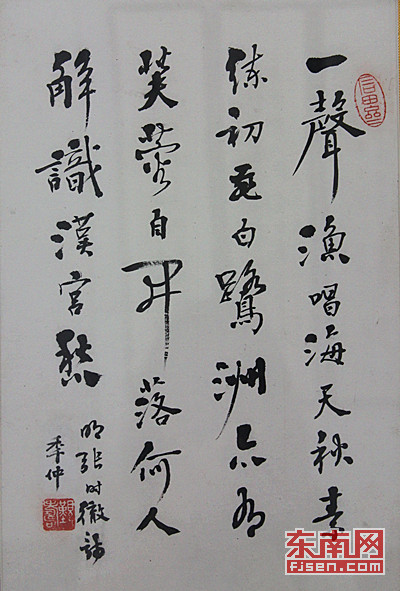 一聲漁唱海天秋素
練初飛白鷺洲亦有
芙蓉自開落何人
解識漢宮愁
明張时徹詩
季仲
东南网
fjsen.com